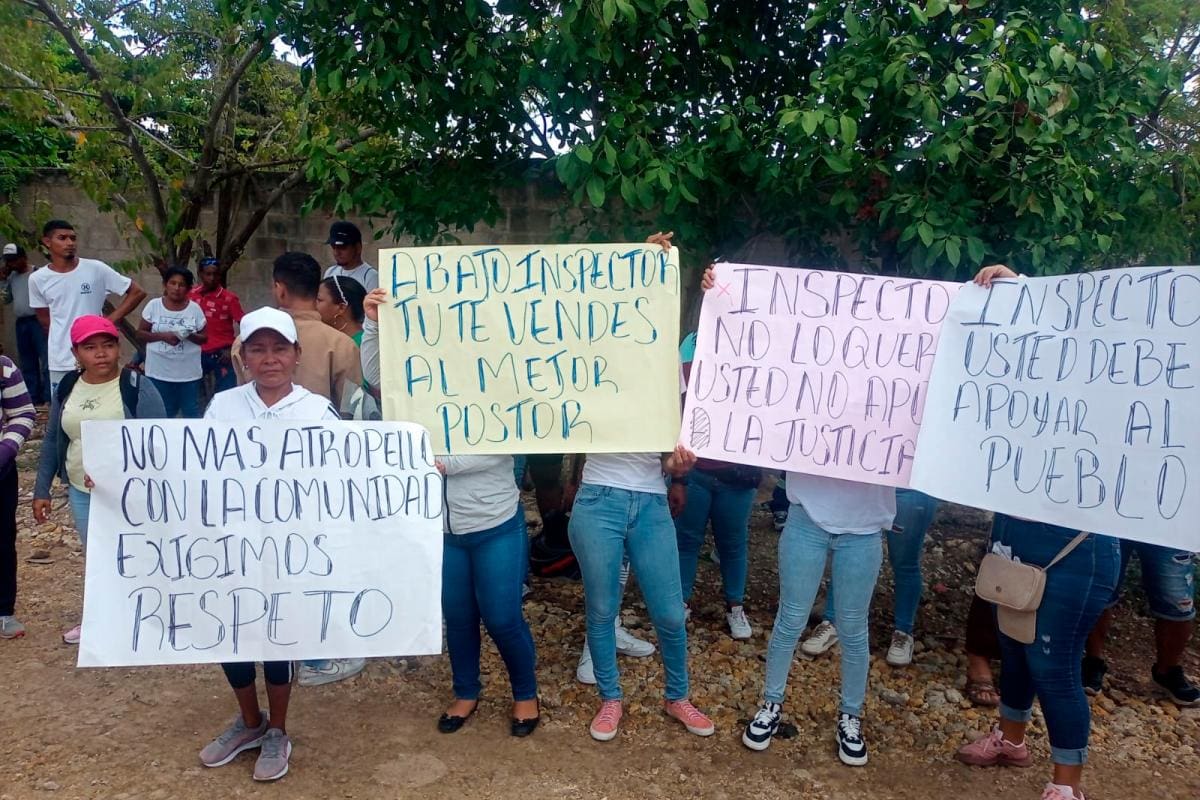 NO MAS ATROPELLO
CON LA COMUNIDAD
EXIGIMOS
RESPETO
ABAJO INSPECTOR
TU TE VENDES
AL MEJOR
POSTOR
INSPECTO
NO LO QUER
USTED NO APO
LA JUSTICIA
INSPECTO
USTED DEBE
APOYAR AL
PUEBLO